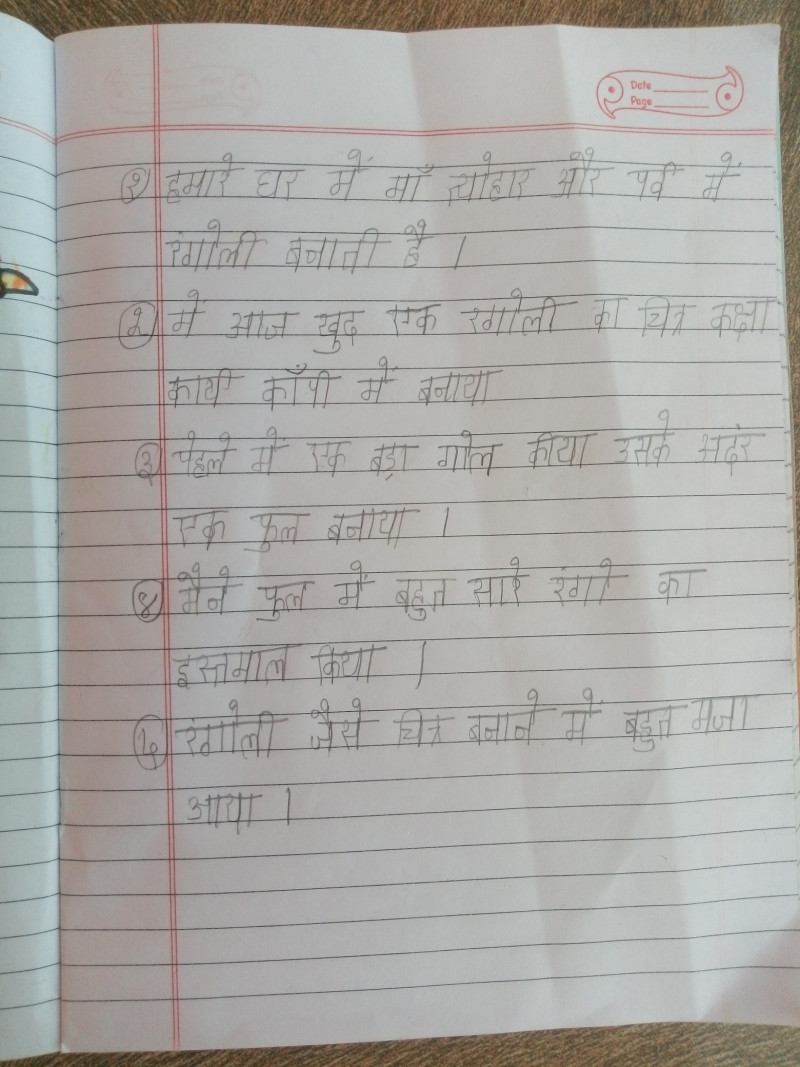 Date
Page
१ हमारे घर में माँ त्योहार और पर्व में
रंगोली बनाती है ।
२ में आज खुद एक रगोली का चित्र कक्षा
कार्य कॉँपी में बनाया
३ पेहले में एक बड़ा गोल कीया उसके अदंर
एक फुल बनाया ।
४ मैने फुल में बहुत सारे रंगो का
इस्तमाल किया ।
५ रंगोली जैसे चित्र बनाने में बहुत मजा
आया ।